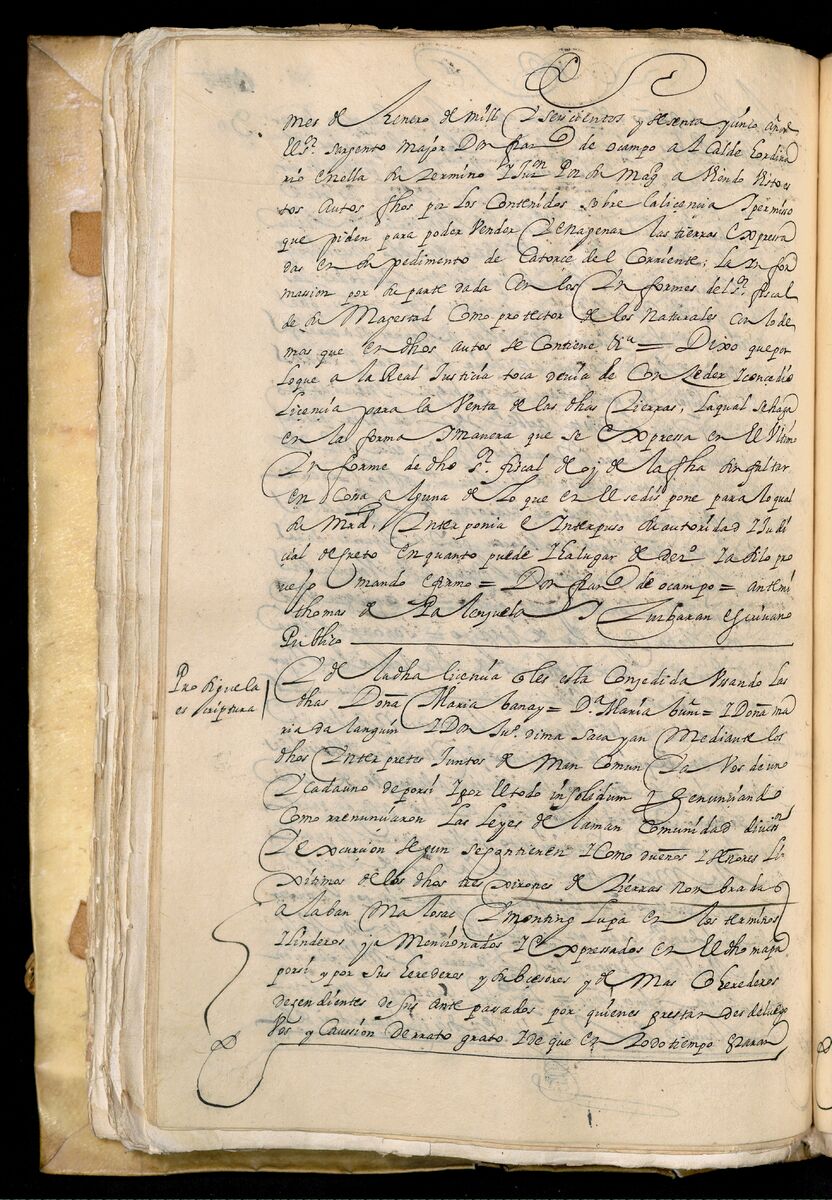 mes de henero de mill Y seiscientos y sesenta y sinco años
El Sr. sargento major Don franco de ocampo alcalde hordina
rio en ella su termino Y Jurn Por su Magd a viendo Visto es
tos autos fhos por los Contenidos sobre la licencia Y permiso
que piden para poder Vender Y Enagenar las tierras Expresa
das en su pedimento de Catorce del Corriente; la Infor
massion por su parte dada Con los Informes del Sr. fiscal
de su Magestad Como protector de los Naturales Con lo de
mas que en dhos autos se Contiene & = Dixo que por
lo que a la Real Justicia toca devia de Conseder Y consedio
Licencia para la Venta de las dhas tierras, la qual se haga
en la forma Y manera que se Expressa en el Ultimo
Informe de dho Sr. fiscal de oj de la fha sin faltar
en Cosa alguna de lo que en el se dispone para lo qual
su Mrd, Interponia e Interpuso su autoridad Y Judi
cial decreto en quanto puede Y ha lugar de dero. Y asi lo pro
veyo mando e firmo = Don franco de ocampo = ante mi
thomas de Palensuela Y Zurbaran escrivano
Publico
Pro sigue la
escriptura
Y de la dha licencia q les esta Consedida Usando las
dhas Doña Maria banay = Da. Maria = Y Doña ma
ria dalanguin Y Don Juo. dima saca yan Mediante los
dhos Interpretes Juntos de Man Comun Y a Vos de uno
Y cada uno de por si Y por el todo insolidum Renunciando
Como rrenunciaron las leyes de la man Comunidad divission
Y Excursion segun se Contienen Y Como dueños Y señores le
xitimos de los dhos tres xirones de tierras nombrados
alaban Malosac Y monting Lupa en los terminos
Y linderos ya Mencionados Y Expressados en el dho mapa
por si y por sus herederos y subcesores y de Mas Coherederos
desendientes de sus ante pasados por quienes prestan desde luego
Vos y Caussion de rrato grato Y de que en todo tiempo